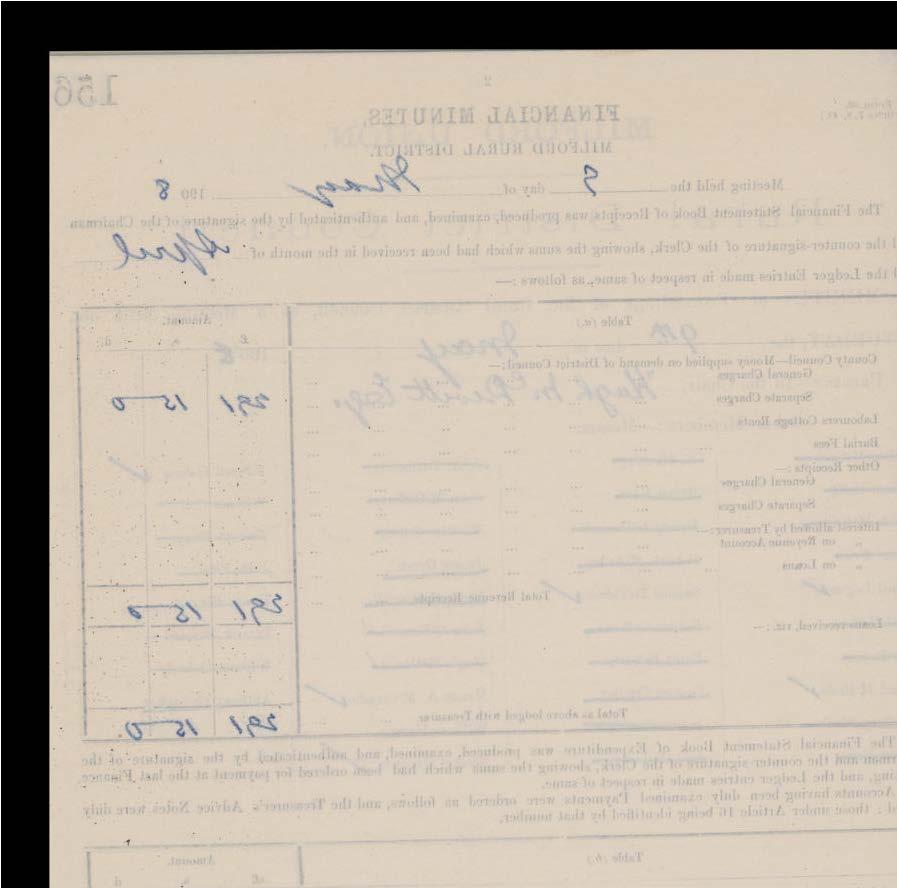 156
2
FINANCIAL MINUTES.
MILFORD RURAL DISTRICT.
Meeting held the 9 day of May 1908
The Financial Statement Book of Receipts was produced, examined, and authenticated by the signature of the Chairman
the counter-signature of the Clerk, showing the sums which had been received in the month of April
the Ledger Entries made in respect of same, as follows :—
Table (a.) Amount.
£ s. d.
County Council—Money supplied on demand of District Council :—
General Charges
Separate Charges 291 15 0
Labourers Cottage Rents
Burial Fees
Other Receipts :—
General Charges
Separate Charges
Interest allowed by Treasurer :—
„ on Revenue Account
„ on Loans
Total Revenue Receipts 291 15 0
Loans received, viz. :—
Total as above lodged with Treasurer 291 15 0
The Financial Statement Book of Expenditure was produced, examined, and authenticated by the signature of the
and the counter-signature of the Clerk, showing the sums which had been ordered for payment at the last Finance
and the Ledger entries made in respect of same.
Accounts having been duly examined Payments were ordered as follows, and the Treasurer's Advice Notes were duly
: those under Article 16 being identified by that number.
Table (b.) Amount.
£ s. d.